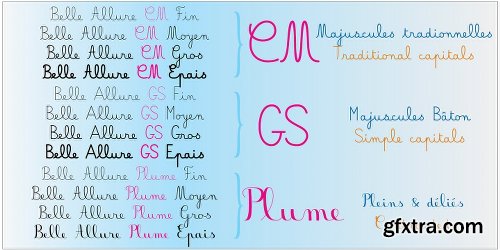 Belle Allure CM Fin
Belle Allure CM Moyen
Belle Allure CM Gros
Belle Allure CM Epais
CM
Majuscules tradionnelles
Traditional capitals
Belle Allure GS Fin
Belle Allure GS Moyen
Belle Allure GS Gros
Belle Allure GS Epais
GS
Majuscules Bâton
Simple capitals
Belle Allure Plume Fin
Belle Allure Plume Moyen
Belle Allure Plume Gros
Belle Allure Plume Epais
Plume
Pleins & déliés
gfxtra.com